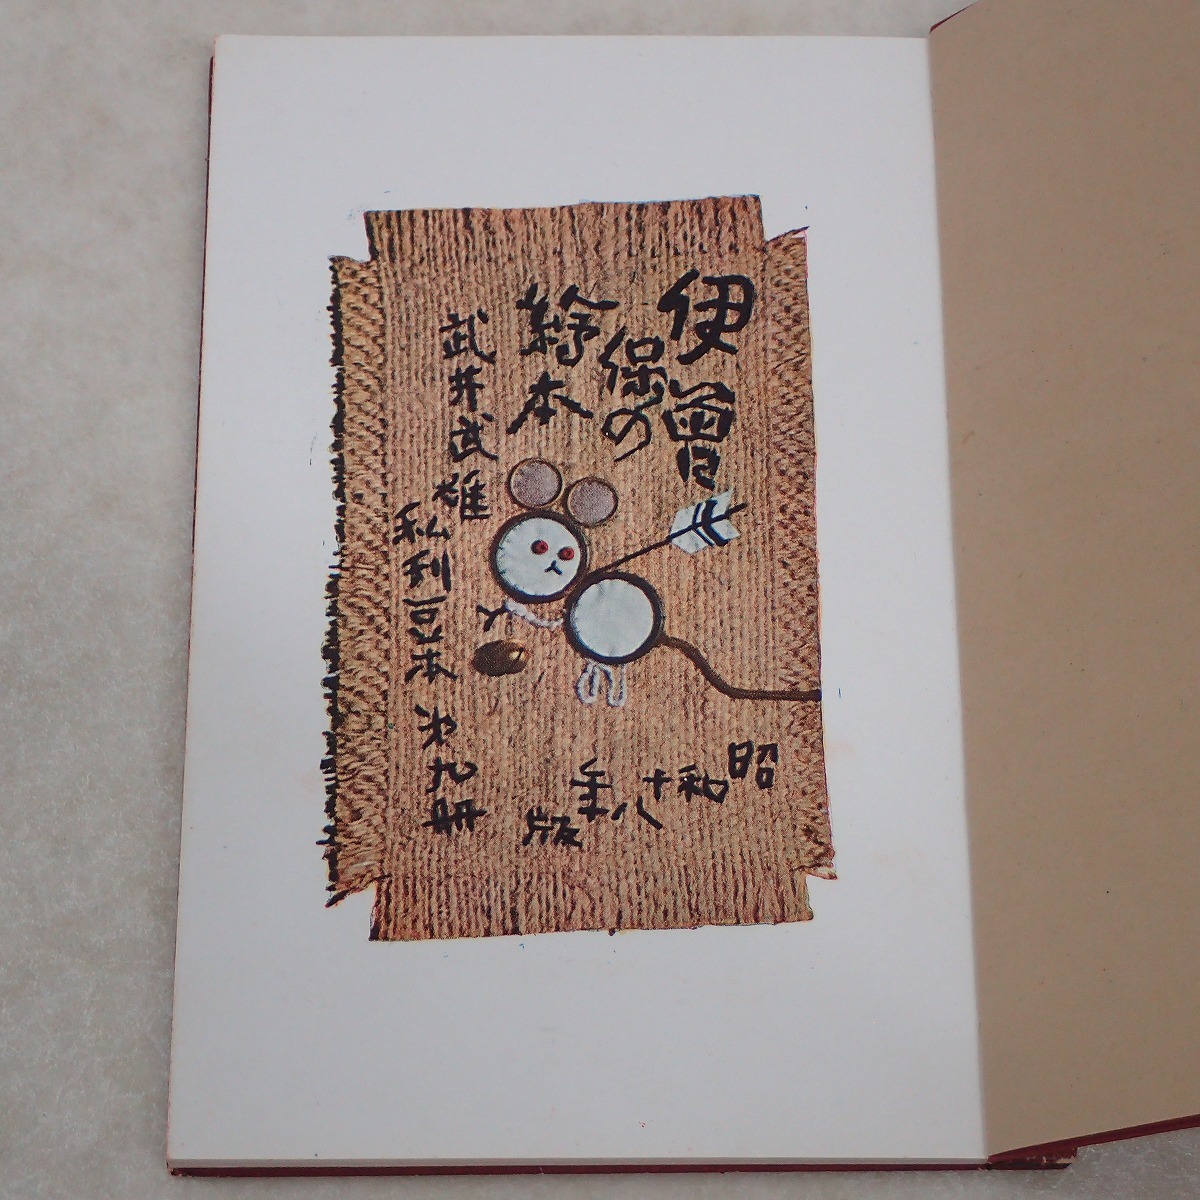 伊曾
保の
絵本
武井武雄
私刊豆本 第九冊
昭和十八年版